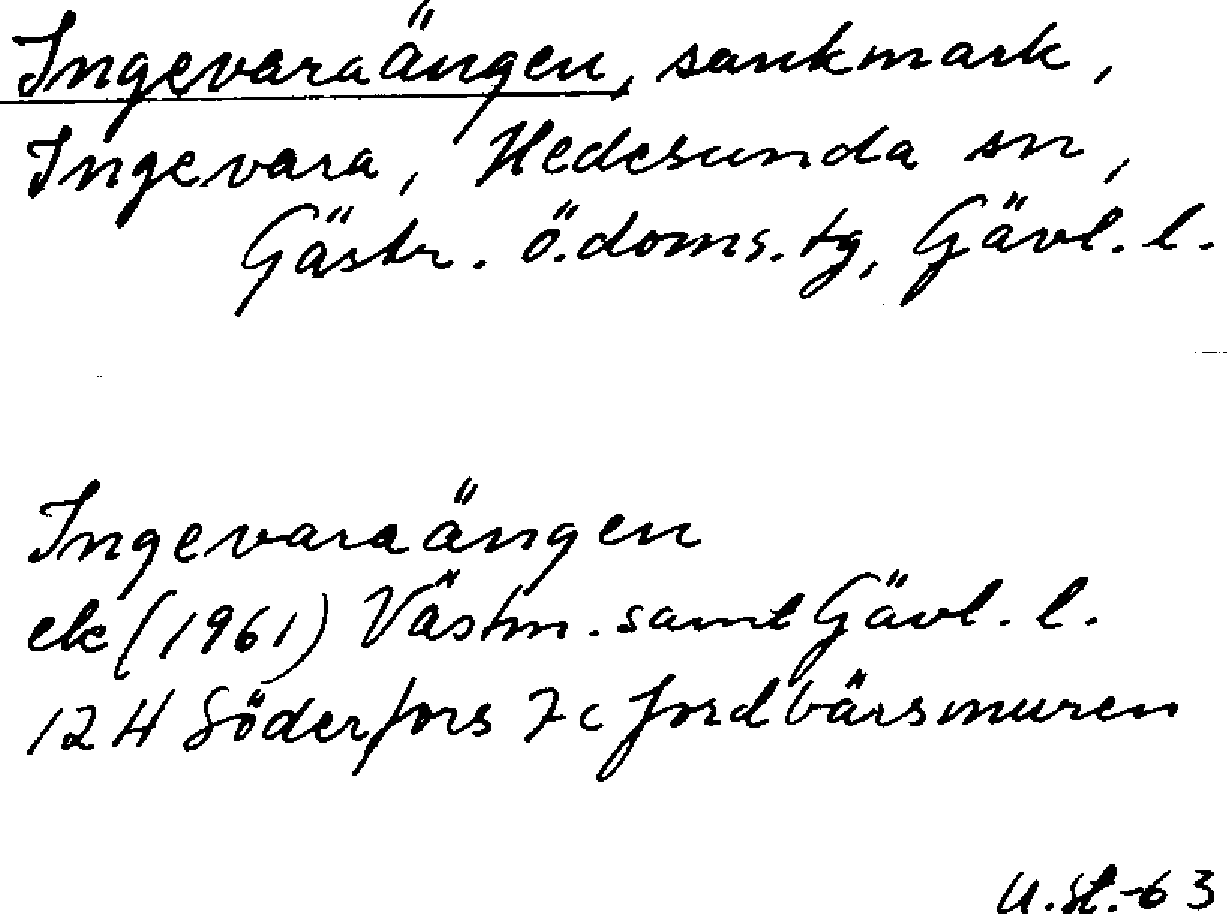 Ingevaraängen, sankmark,
Ingevara, Hedesunda sn,
Gästr. ö. doms. tg, Gävl. l.
Ingevaraängen
ek (1961) Västm. samt Gävl. l.
12 H Söderfors 7 c Jordbärsmuren
U. St.-63